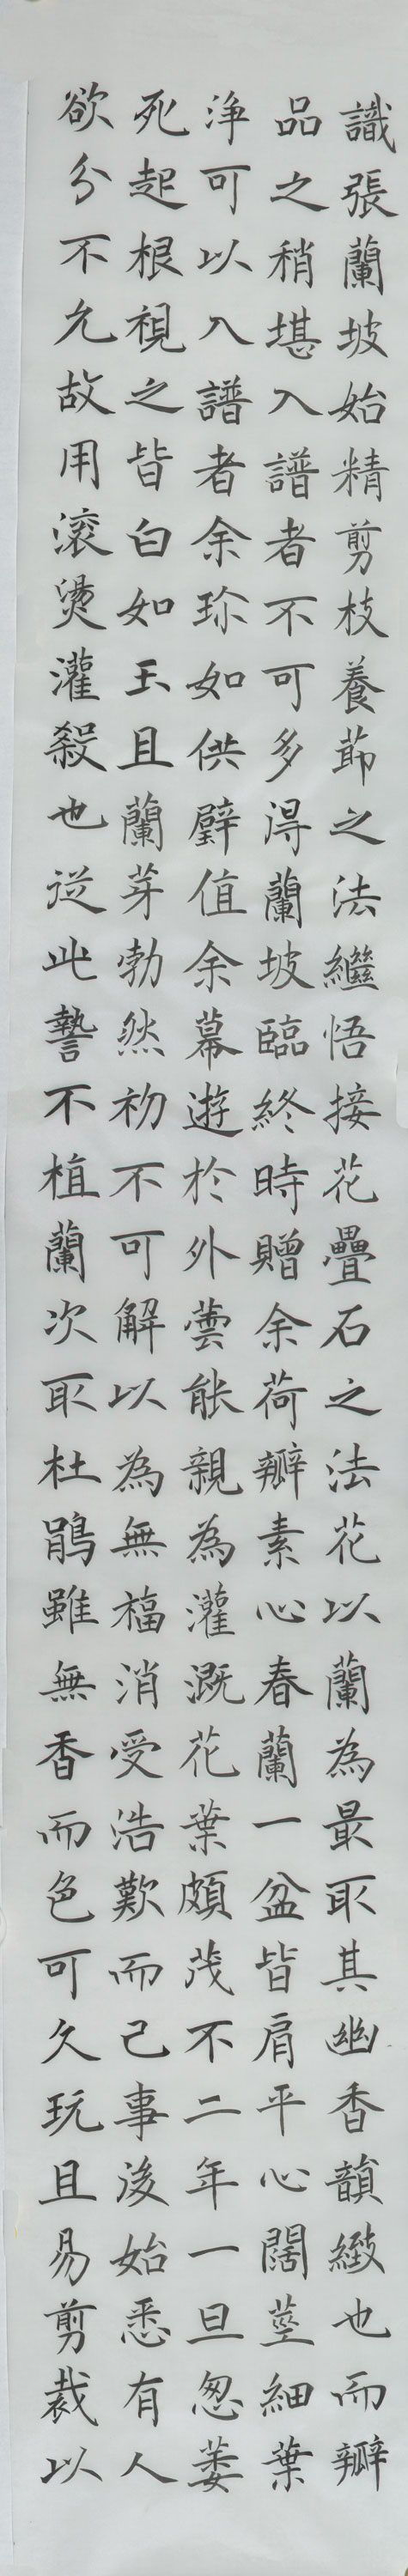 識張蘭坡始精剪枝養節之法繼悟接花疊石之法花以蘭為最取其幽香韻緻也而瓣
品之稍堪入譜者不可多得蘭坡臨終時贈余荷瓣素心春蘭一盆皆肩平心闊莖細葉
淨可以入譜者余珍如供璧值余幕遊於外蕓能親為灌溉花葉頗茂不二年一旦忽萎
死起根視之皆白如玉且蘭芽勃然初不可解以為無福消受浩歎而已事後始悉有人
欲分不允故用滾燙灌殺也從此誓不植蘭次取杜鵑雖無香而色可久玩且易剪裁以